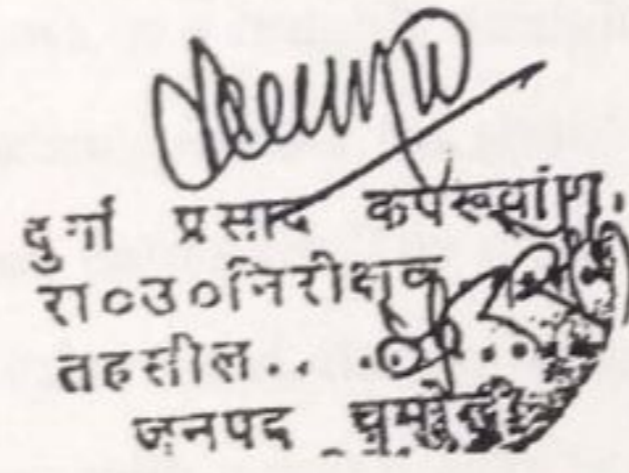 दुर्गा प्रसाद कर्परूवांण.
रा०उ०निरीक्षक
तहसील..
जनपद चमोली